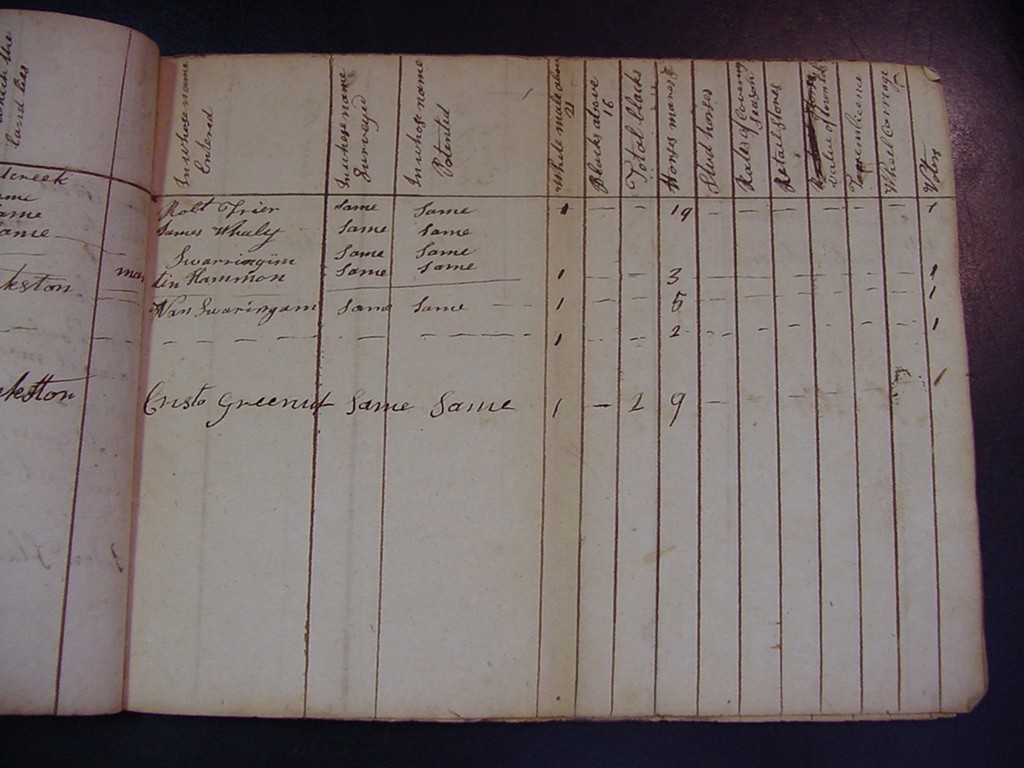 which the
land lies
In whose name
Entered
In whose name
Surveyd
In whose name
Patentd
White male above
21
Blacks above
16
Total blacks
Horses mares &
Stud horses
Rates of Covring
Season
Retail stores
value of town lots
Wheel Carriage
Voters
creek
ame
ame
ame
Robt Frier Same Same 1 - - 19 - - - - - - 1
James Whaly Same Same
Swarringim Same Same
tin Hammon Same Same 1 - - 3 - - - - - - 1
kston
Van Swaringam Same Same - - 1 5 1
- - - - - - - 1 - - 2 - - - - - - 1
kston
Cristo Greenut Same Same 1 - 2 9 - - - 1